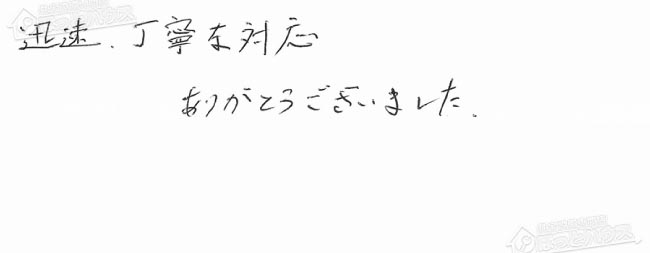 迅速、丁寧な対応
ありがとうございました.